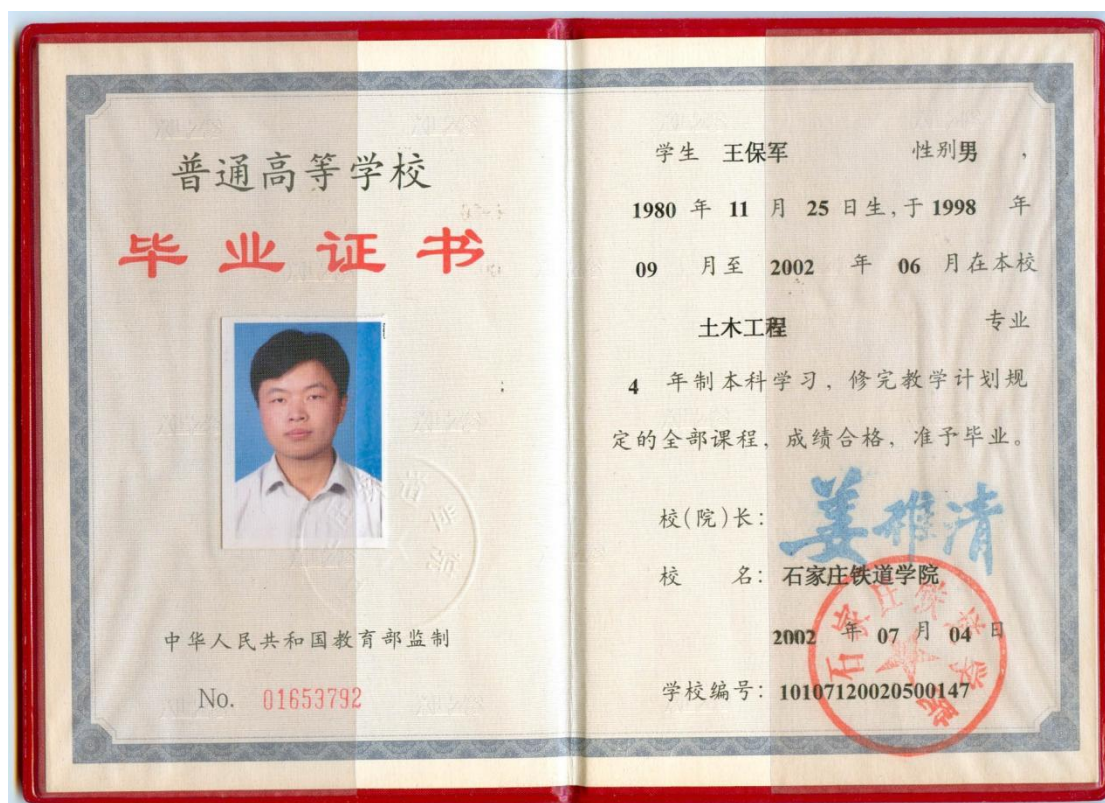 普通高等学校
毕业证书
中华人民共和国教育部监制
No. 01653792
学生 王保军 性别男，
1980 年 11 月 25 日生，于 1998 年
09 月至 2002 年 06 月在本校
土木工程 专业
4 年制本科学习，修完教学计划规
定的全部课程，成绩合格，准予毕业。
校(院)长：
校 名：石家庄铁道学院
2002 年 07 月 04 日
学校编号：10107120020500147
石家庄铁道学院